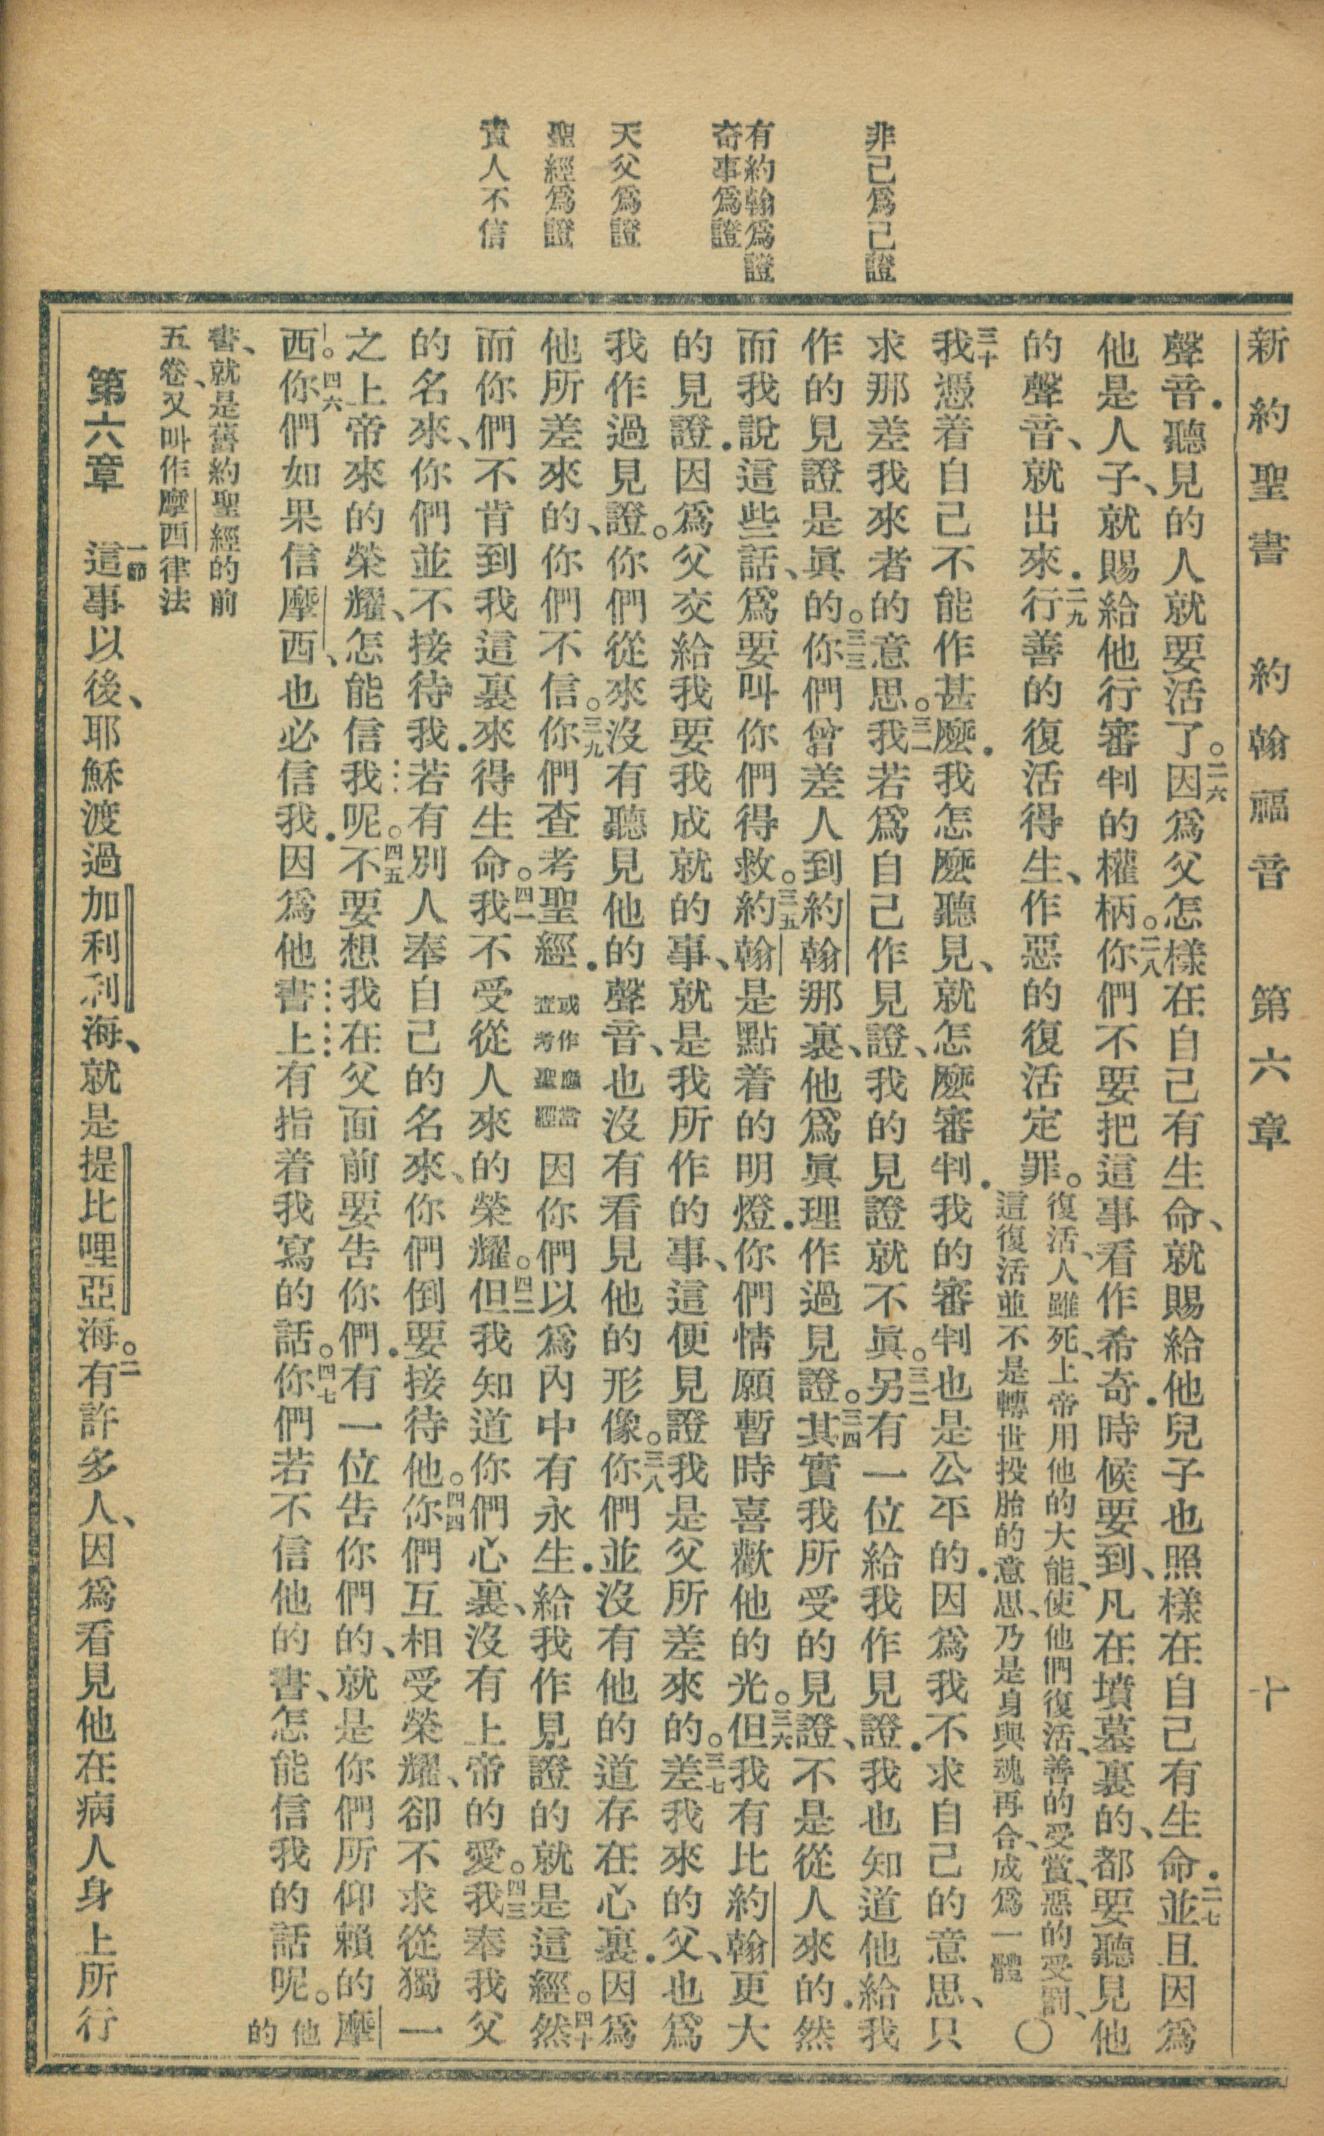 非己爲己證
有約翰爲證
奇事爲證
天父爲證
聖經爲證
責人不信
新約聖書 約翰福音 第六章 十
聲音.聽見的人就要活了。二六因爲父怎樣在自己有生命、就賜給他兒子也照樣在自己有生命.二七並且因爲
他是人子、就賜給他行審判的權柄。二八你們不要把這事看作希奇.時候要到、凡在墳墓裏的、都要聽見他
的聲音、就出來.二九行善的復活得生、作惡的復活定罪。復活、人雖死、上帝用他的大能、使他們復活、善的受賞、惡的受罰、
這復活並不是轉世投胎的意思、乃是身與魂再合、成爲一體〇
三十我憑着自己不能作甚麼.我怎麼聽見、就怎麼審判.我的審判也是公平的.因爲我不求自己的意思、只
求那差我來者的意思。三一我若爲自己作見證、我的見證就不眞。三二另有一位給我作見證.我也知道他給我
作的見證是眞的。三三你們曾差人到約翰那裏、他爲眞理作過見證。三四其實我所受的見證、不是從人來的.然
而我說這些話、爲要叫你們得救。三五約翰是點着的明燈.你們情願暫時喜歡他的光。三六但我有比約翰更大
的見證.因爲父交給我要我成就的事、就是我所作的事、這便見證我是父所差來的。三七差我來的父、也爲
我作過見證。你們從來沒有聽見他的聲音、也沒有看見他的形像。三八你們並沒有他的道存在心裏.因爲
他所差來的、你們不信。三九你們查考聖經.或作應當查考聖經因你們以爲內中有永生.給我作見證的就是這經。四十然
而你們不肯到我這裏來得生命。四一我不受從人來的榮耀。四二但我知道你們心裏、沒有上帝的愛。四三我奉我父
的名來、你們並不接待我.若有別人奉自己的名來、你們倒要接待他。四四你們互相受榮耀、卻不求從獨一
之上帝來的榮耀、怎能信我呢。四五不要想我在父面前要告你們.有一位告你們的、就是你們所仰賴的摩
西。四六你們如果信摩西、也必信我.因爲他書上有指着我寫的話。四七你們若不信他的書、怎能信我的話呢。他的
書、就是舊約聖經的前
五卷、又叫作摩西律法
第六章 一節這事以後、耶穌渡過加利利海、就是提比哩亞海。二有許多人、因爲看見他在病人身上所行